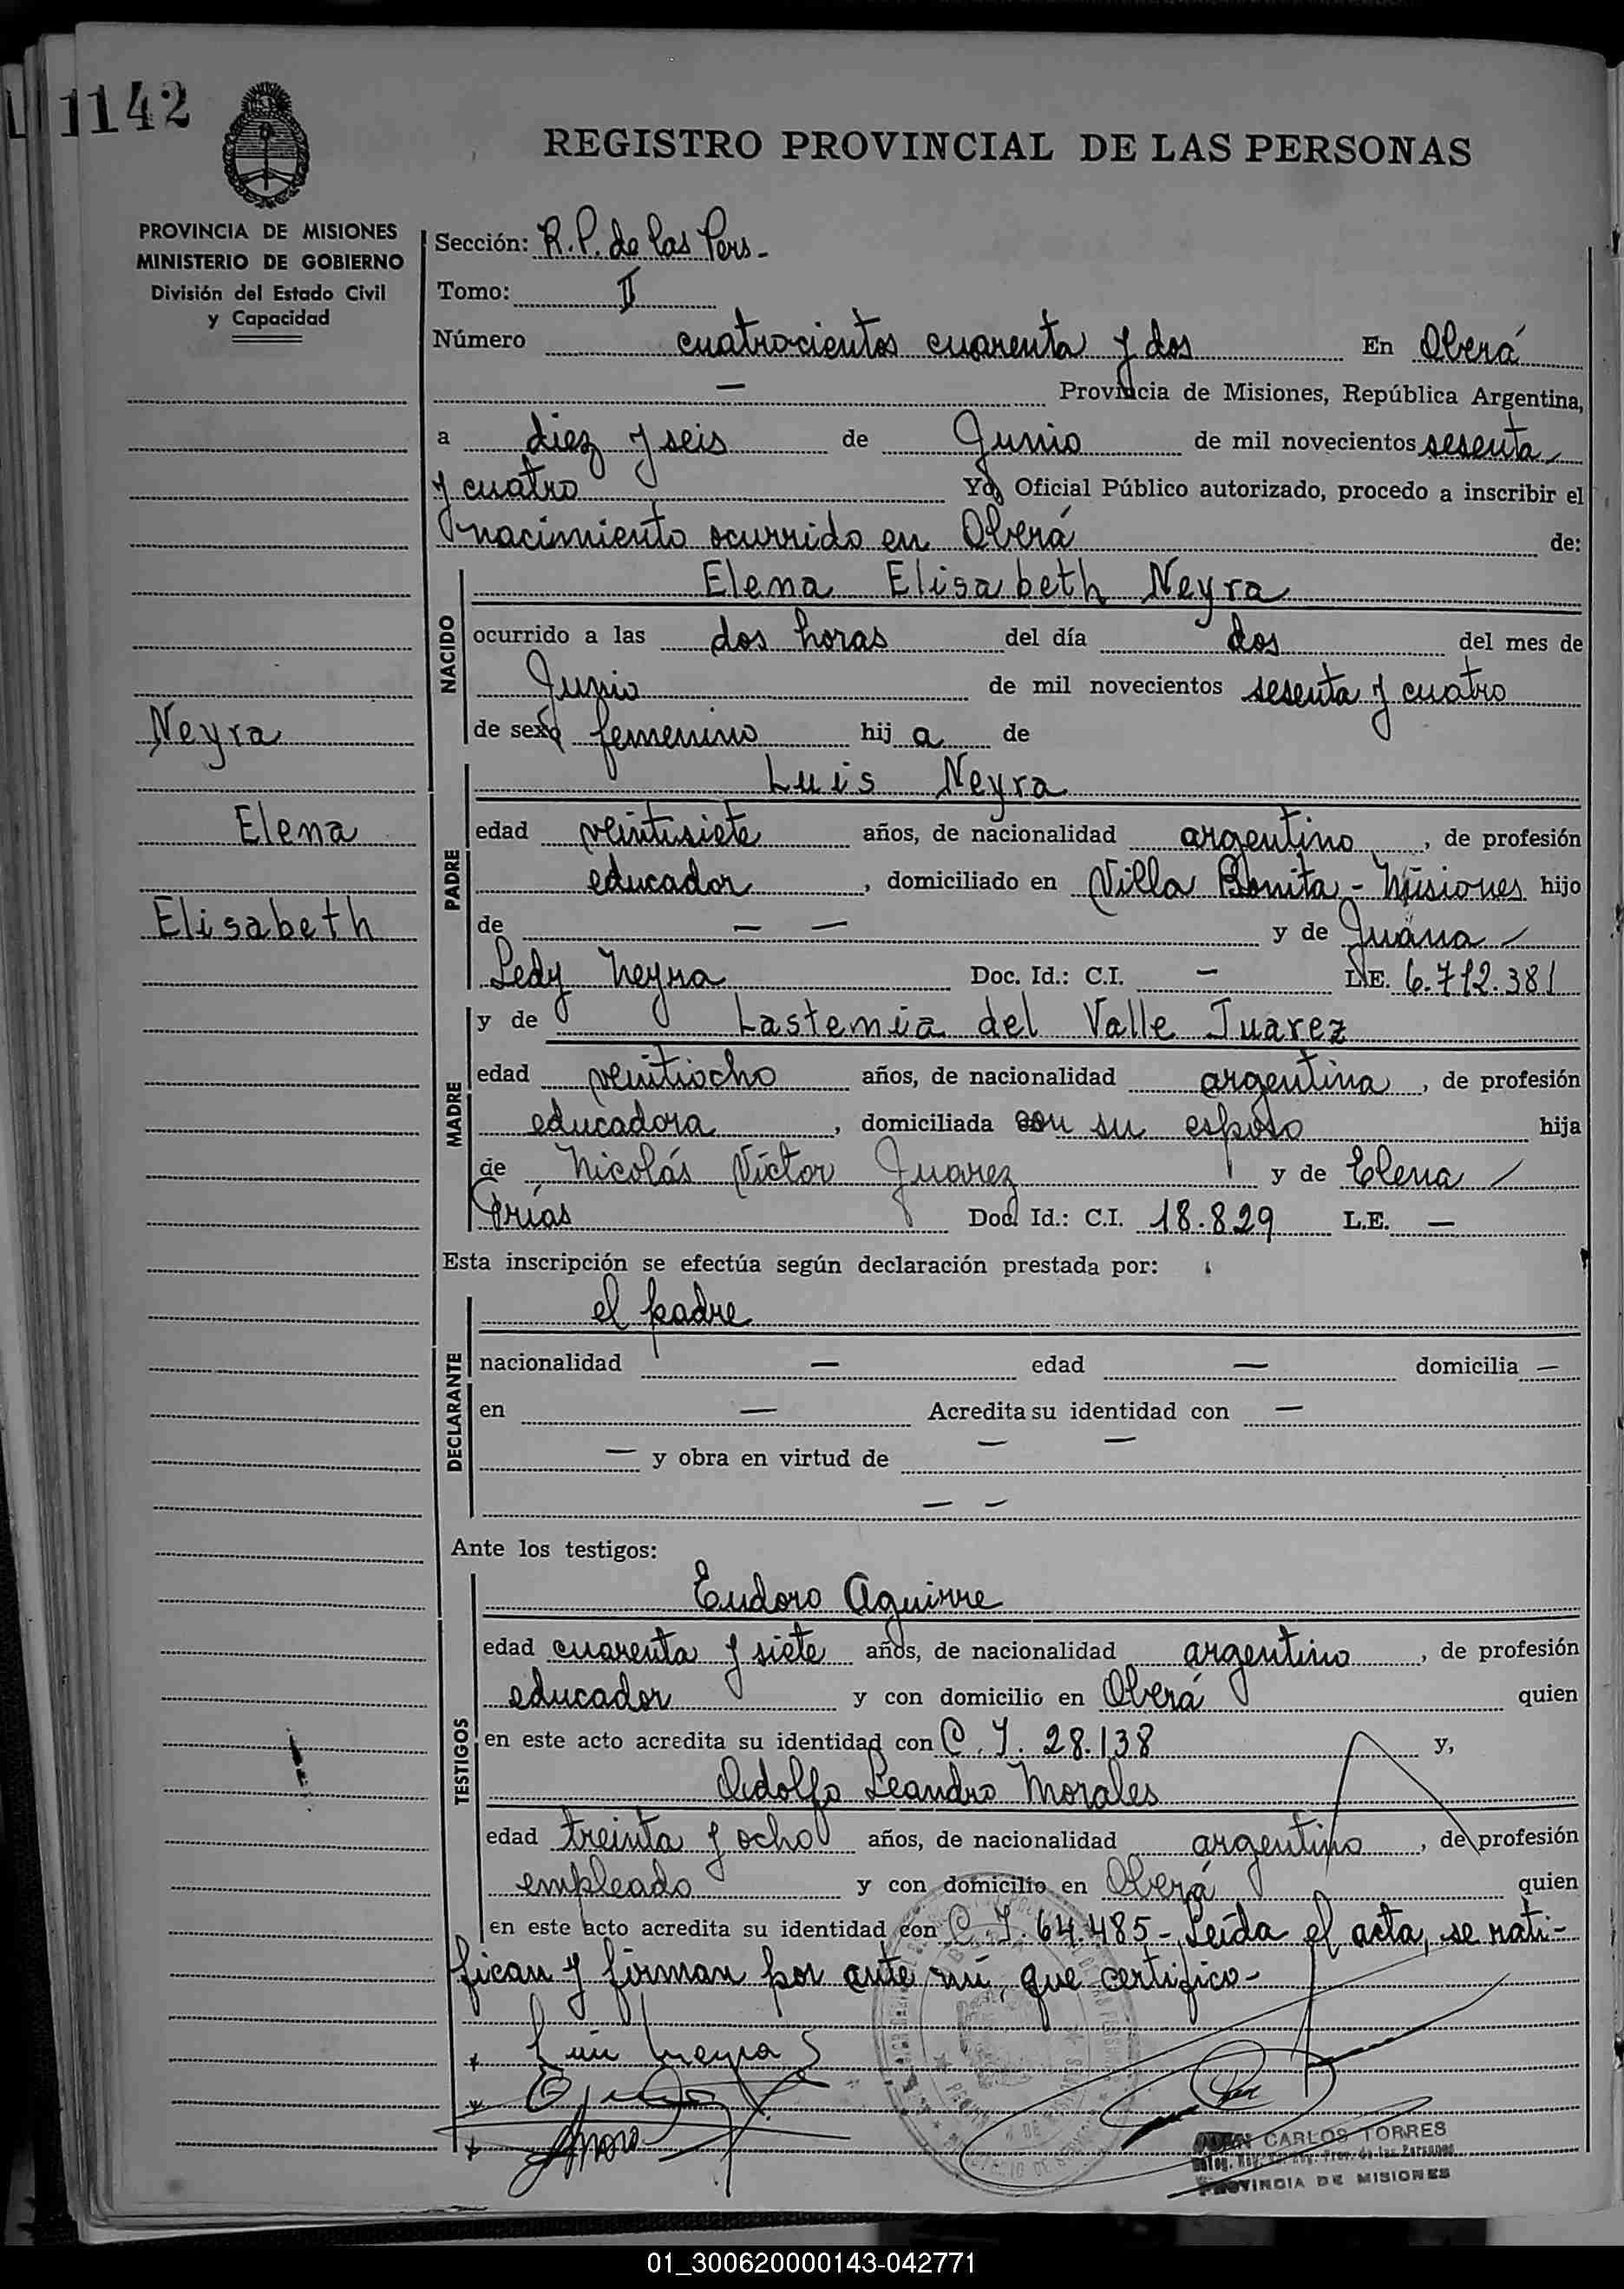 1142
REGISTRO PROVINCIAL DE LAS PERSONAS
PROVINCIA DE MISIONES
MINISTERIO DE GOBIERNO
División del Estado Civil
y Capacidad
Neyra
Elena
Elisabeth
Sección: R.P. de las Pers-
Tomo: II
Número cuatrocientos cuarenta y dos En Oberá
— Provincia de Misiones, República Argentina,
a diez y seis de Junio de mil novecientos sesenta
y cuatro Yo, Oficial Público autorizado, procedo a inscribir el
nacimiento ocurrido en Oberá de:
NACIDO
Elena Elisabeth Neyra
ocurrido a las dos horas del día dos del mes de
Junio de mil novecientos sesenta y cuatro
de sexo femenino hij a de
PADRE
Luis Neyra
edad veintisiete años, de nacionalidad argentino, de profesión
educador, domiciliado en Villa Bonita - Misiones hijo
de — — y de Juana
Ledy Neyra Doc. Id.: C.I. — L.E. 6.712.381
MADRE
y de Lastemia del Valle Juarez
edad veintiocho años, de nacionalidad argentina, de profesión
educadora, domiciliada con su esposo hija
de Nicolás Víctor Juarez y de Elena
Frías Doc. Id.: C.I. 18.829 L.E. —
Esta inscripción se efectúa según declaración prestada por:
DECLARANTE
el padre
nacionalidad — edad — domicilia —
en — Acredita su identidad con —
— y obra en virtud de — —
— —
Ante los testigos:
TESTIGOS
Eudoro Aguirre
edad cuarenta y siete años, de nacionalidad argentino, de profesión
educador y con domicilio en Oberá quien
en este acto acredita su identidad con C.I. 28.138 y,
Adolfo Leandro Morales
edad treinta y ocho años, de nacionalidad argentino, de profesión
empleado y con domicilio en Oberá quien
en este acto acredita su identidad con C.I. 64.485 - Leída el acta, se rati-
fican y firman por ante mí, que certifico-
Luis Neyra
CARLOS TORRES
PROVINCIA DE MISIONES
01_300620000143-042771